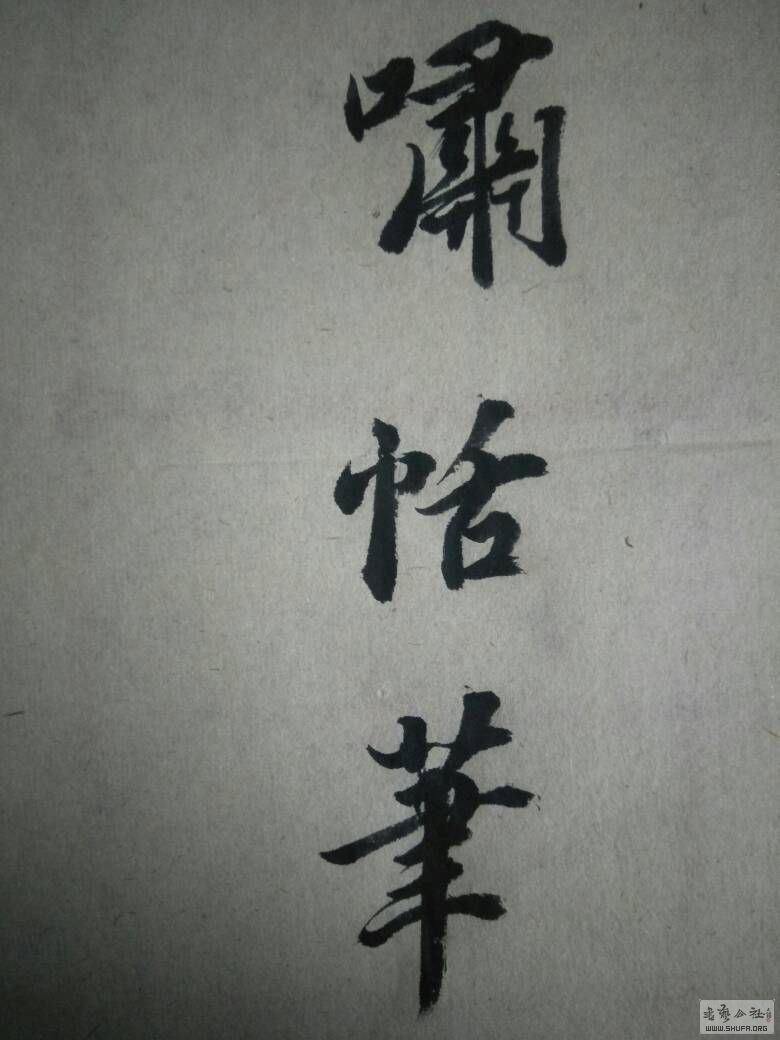 嘯恬筆
书艺公社
WWW.SHUFA.ORG